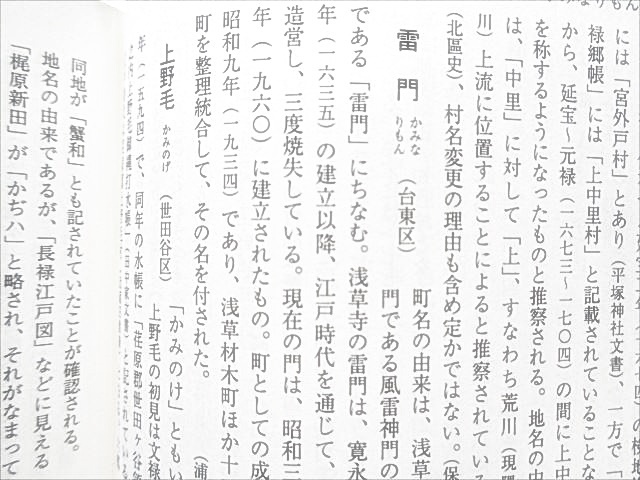 には「宮外戸村」とあり（平塚神社文書）、一方で「
禄郷帳」には「上中里村」と記載されていることな
から、延宝～元禄（一六七三～一七〇四）の間に上中
を称するようになったものと推察される。地名の由
は、「中里」に対して「上」、すなわち荒川（現隅
川）上流に位置することによると推察されている
（北區史）、村名変更の理由も含め定かではない。（保
雷門 かみなりもん （台東区）
町名の由来は、浅草
門である風雷神門の
である「雷門」にちなむ。浅草寺の雷門は、寛永
年（一六三五）の建立以降、江戸時代を通じて、
造営し、三度焼失している。現在の門は、昭和三
年（一九六〇）に建立されたもの。町としての成
昭和九年（一九三四）であり、浅草材木町ほか十
町を整理統合して、その名を付された。（浦
上野毛 かみのげ （世田谷区）
「かみのけ」ともい
上野毛の初見は文禄
年（一五九四）で、同年の水帳に「荏原郡世田ヶ谷領
同地が「蟹和」とも記されていたことが確認される。
地名の由来であるが、「長禄江戸図」などに見える
「梶原新田」が「かぢハ」と略され、それがなまって